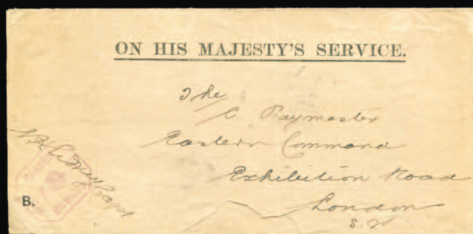 ON HIS MAJESTY'S SERVICE.
The
C Paymaster
Eastern Command
Exhibition Road
London
S.W
B.